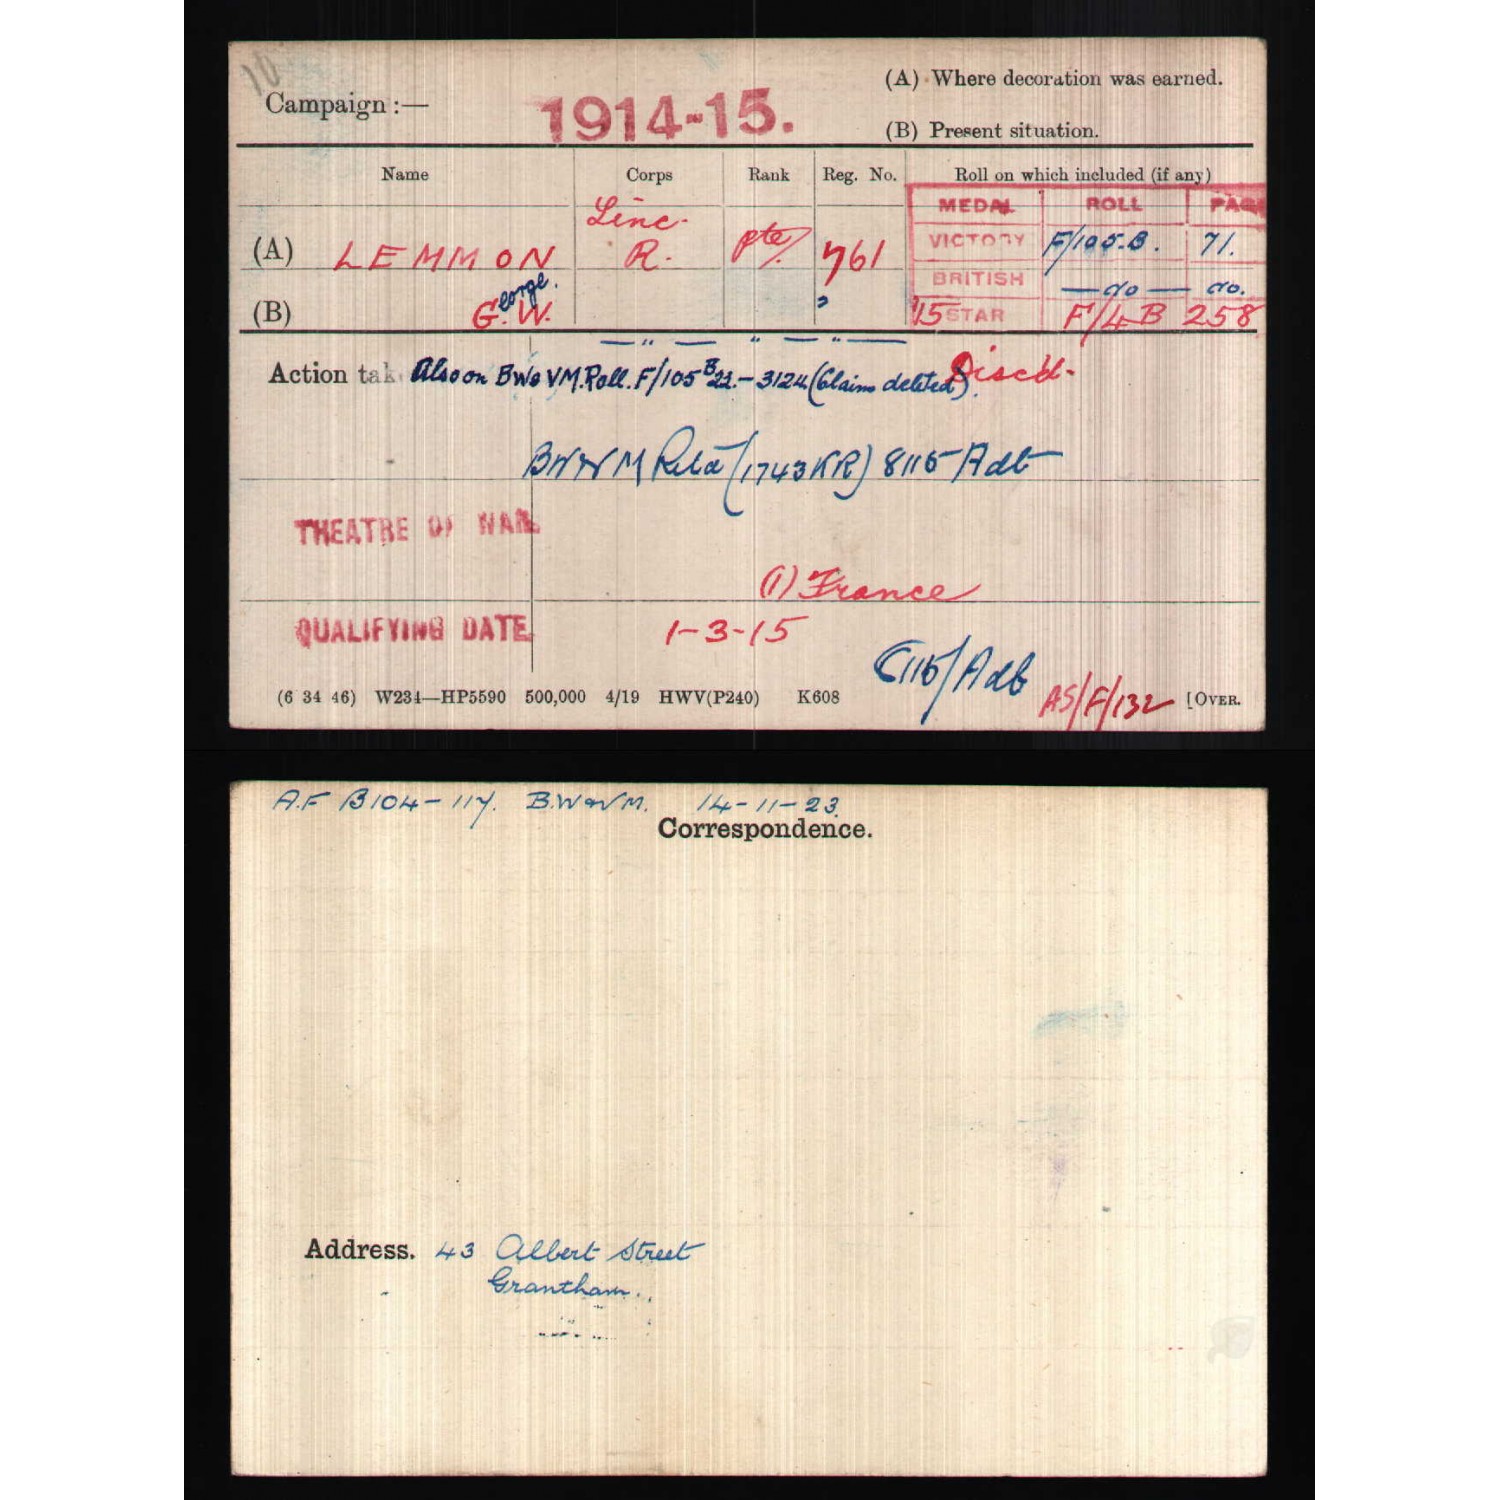 Campaign :— 1914-15. (A) Where decoration was earned.
(B) Present situation.
Name Corps Rank Reg. No. Roll on which included (if any)
MEDAL ROLL PAGE
(A) LEMMON Linc. R. Pte. 761 VICTORY F/105.B. 71.
BRITISH —do— do.
(B) G.W. George. 15 STAR F/4B 258
— " — " — " —
Action tak Also on BW&VM.Roll.F/105 B22.-3124 (Claim deleted). Disch.
BW&VM Retd (1743KR) 8115/Adt
THEATRE OF WAR.
(1) France
QUALIFYING DATE 1-3-15
8115/Adt
(6 34 46) W234—HP5590 500,000 4/19 HWV(P240) K608 AS/F/132 [OVER.
A.F B104-117. B.W&VM. 14-11-23.
Correspondence.
Address. 43 Albert Street
Grantham.